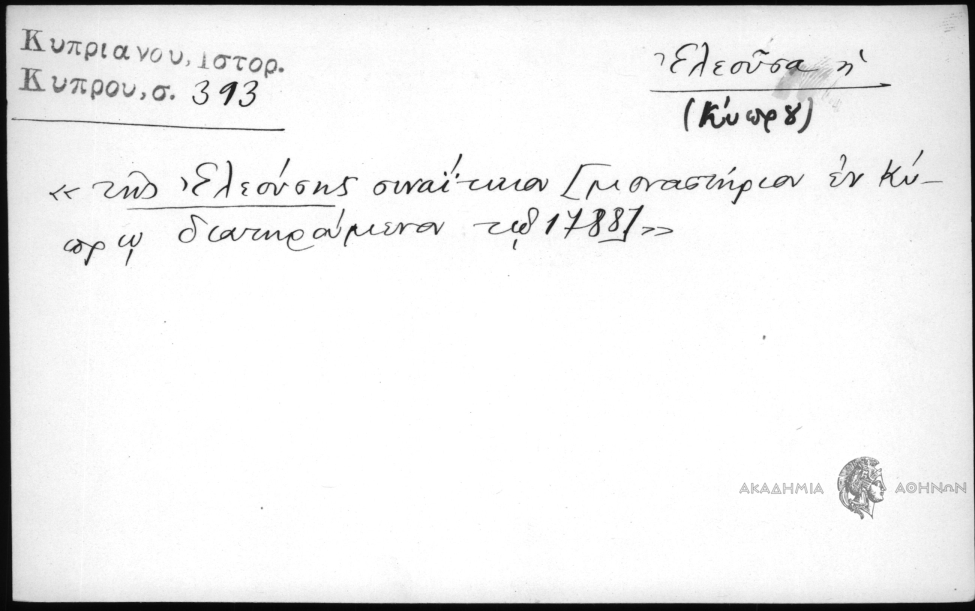 Κυπριανου, Ιστορ.
Κυπρου, σ. 393
Ἐλεοῦσα ἡ
(Κύπρου)
« τῆς Ἐλεούσης σιναΐτικον [μοναστήριον ἐν Κύ-
πρῳ διατηρούμενον τῷ 1788] »
ΑΚΑΔΗΜΙΑ ΑΘΗΝΩΝ